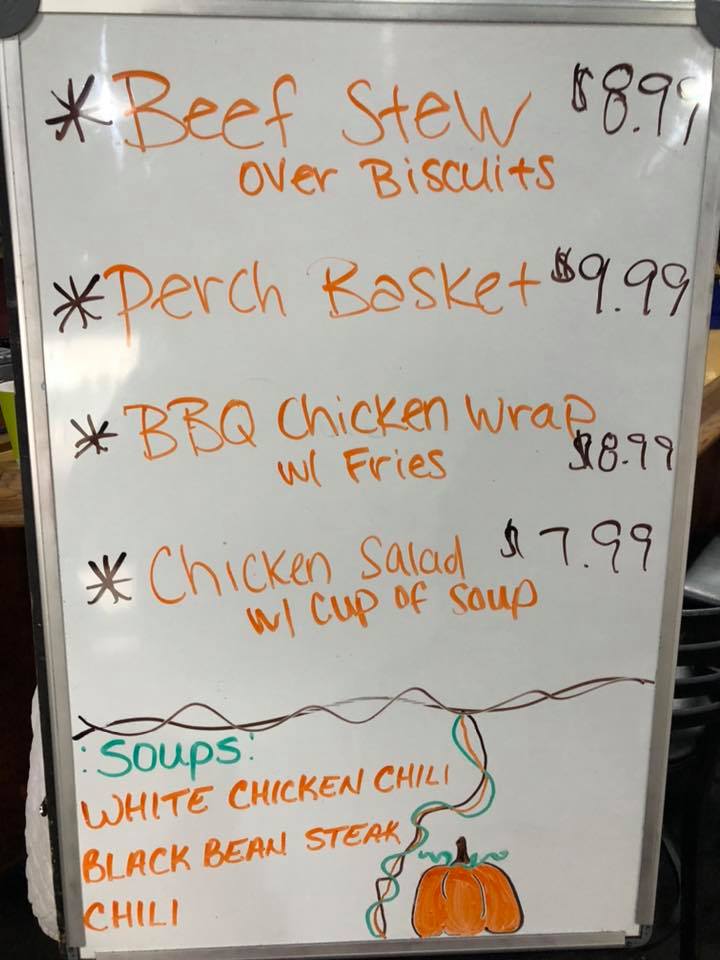 * Beef Stew $8.99
over Biscuits
* Perch Basket $9.99
* BBQ Chicken Wrap
w/ Fries $8.99
* Chicken Salad $7.99
w/ cup of soup
:Soups:
WHITE CHICKEN CHILI
BLACK BEAN STEAK
CHILI